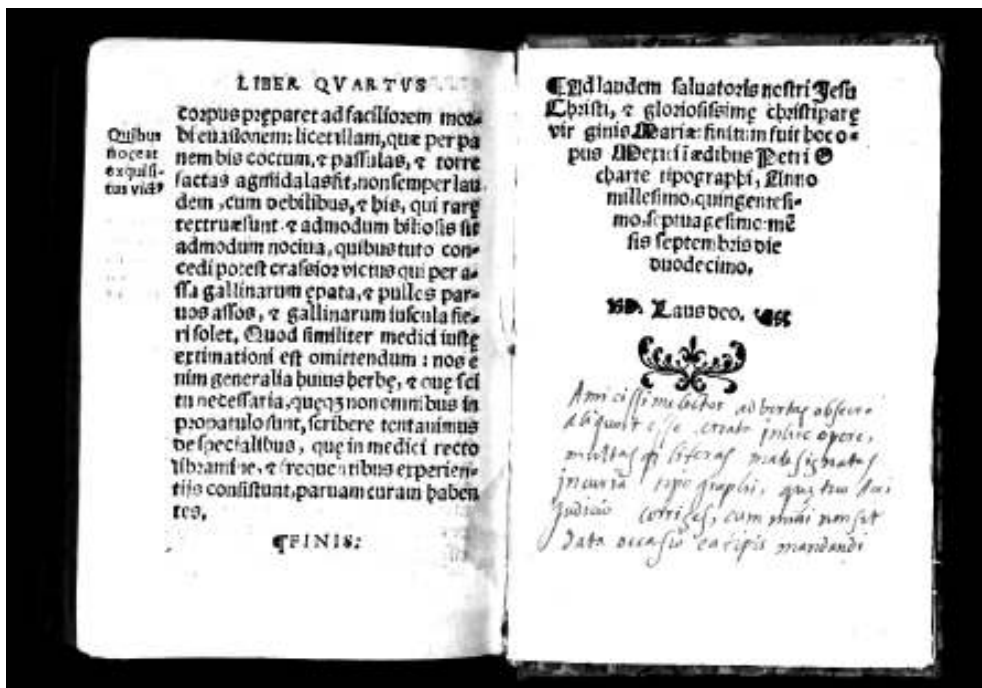 LIBER QVARTVS
corpus pręparet ad faciliorem mor-
bi euasionem: licet illam, quæ per pa
nem bis coctum, ⁊ passulas, ⁊ torre
factas agmidalas fit, non semper lau
dem, cum debilibus, ⁊ his, qui rarę
textruæ sunt ⁊ admodum biliosis sit
admodum nociua, quibus tuto con-
cedi potest crassior victus qui per a-
ssa gallinarum ępata, ⁊ pullos par-
uos assos, ⁊ gallinarum iuscula fie-
ri solet, Quod similiter medici iustę
extimationi est omittendum: nos e
nim generalia huius herbę, ⁊ quę sci
tu necessaria, quęqꝫ non omnibus in
propatulo sunt, scribere tentauimus
de specialibus, quę in medici recto
libramine, ⁊ frequentibus experien-
tijs consistunt, paruam curam haben
tes.
¶FINIS:
Quibus
noceat
exquisi-
tus vict⁹
¶Ad laudem saluatoris nostri Jesu
Christi, ⁊ gloriosissimę christiparę
vir ginis Mariæ: finitum fuit hoc o-
pus Mexici i ædibus Petri O
charte tipographi, Anno
millesimo, quingentesi-
mo, septuagesimo: mē
sis septembris die
duodecimo.
Laus deo.
Amicissime lector advertas obsecro
aliquot esse errata in hoc opere,
multasqꝫ literas male signatas
incuria tipographi, quę tuo
judicio corriges, cum mihi non sit
data occasio ea ipis mandandi